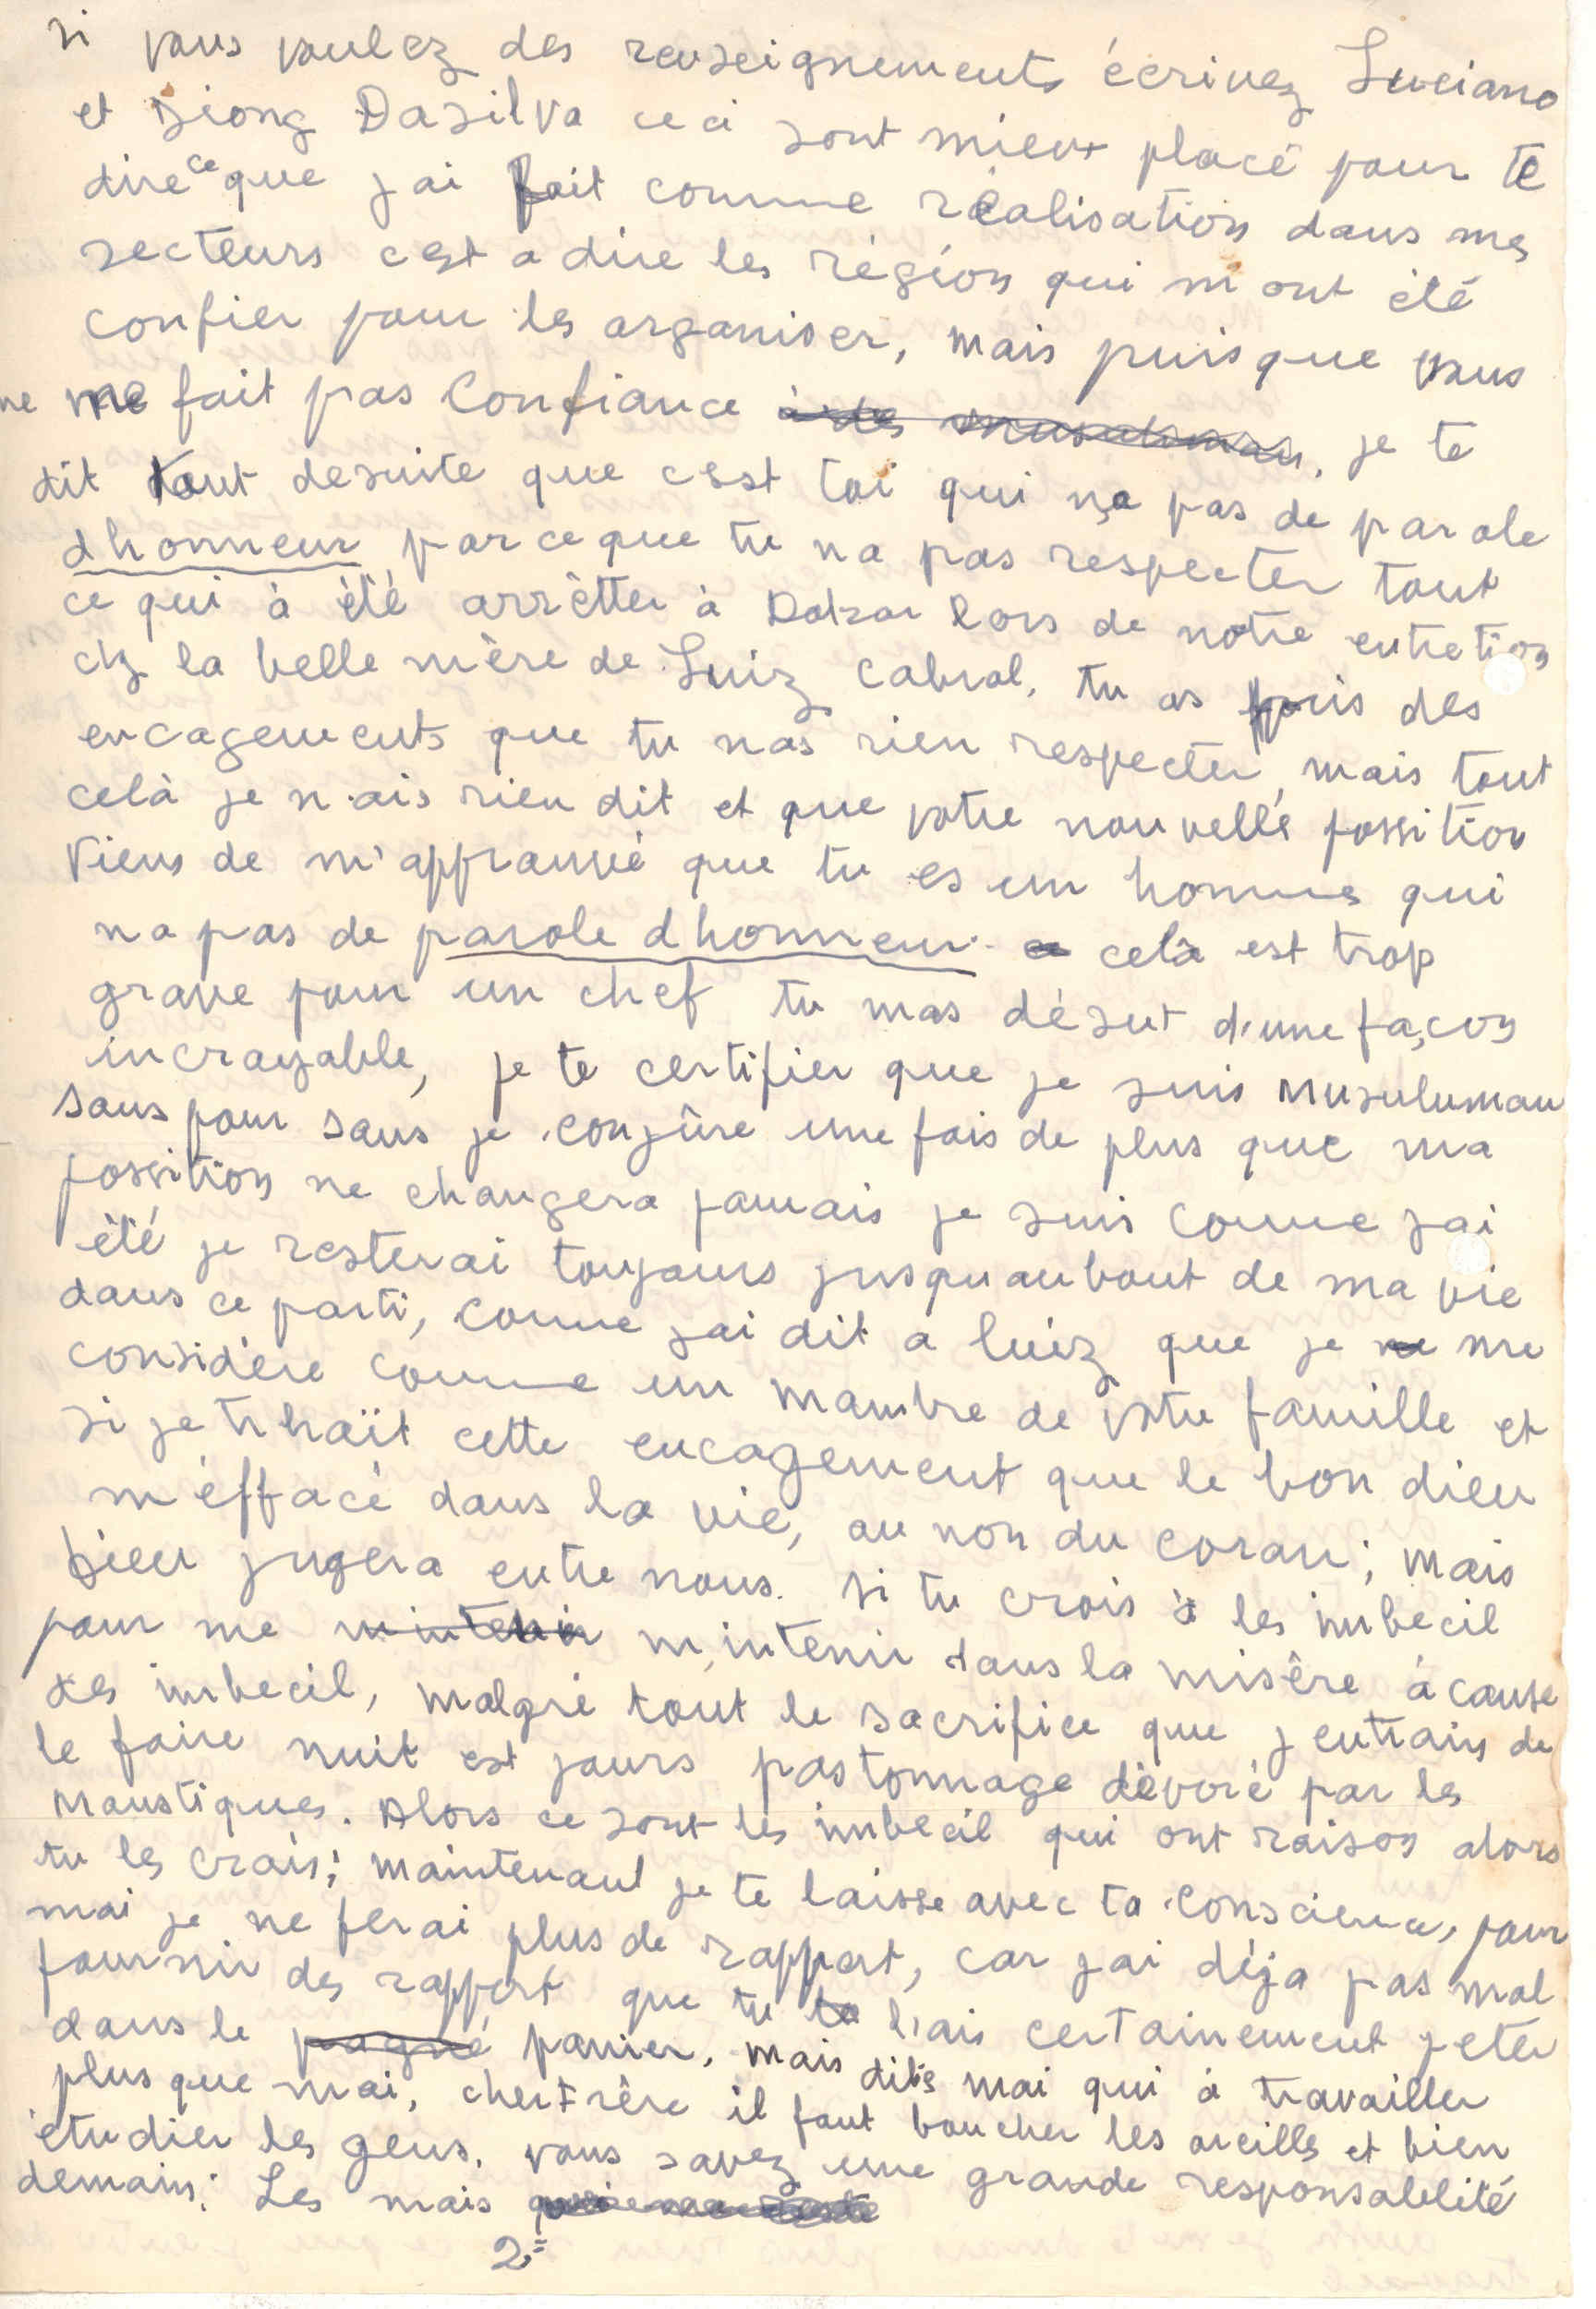 si vous voulez des renseignements écrivez Luciano
et Siong Dasilva ceci sont mieux placé pour te
dire ce que jai fait comme réalisation dans mes
secteurs cest a dire les région qui m ont été
confier pour les organiser, mais puisque vous
ne me fait pas confiance à des musulmans, je te
dit tout desuite que cest toi qui na pas de parole
dhonneur parceque tu na pas respecter tout
ce qui à été arrêtter à Dakar lors de notre entretion
chz la belle mère de Luiz Cabral, tu as pris des
encagements que tu nas rien respecter, mais tout
celà je n'ais rien dit et que votre nouvellé possition
viens de m'apprauvé que tu es un homme qui
na pas de parole dhonneur. celà est trop
grave pour un chef tu mas désut d'une façon
incroyable, je te certifier que je suis musuluman
sans pour sans je conjûre une fois de plus que ma
possition ne changera jamais je suis comme jai
été je resterai toujours jusquaubout de ma vie
dans ce parti, comme jai dit a luiz que je ne me
considère comme un mambre de votre famille et
si je trhaït cette encagement que le bon dieu
m'éffacé dans la vie, au non du coran; mais
Dieu jugera entre nous. si tu crois à les imbecil
pour me mintenir m,intenir dans la misêre à cause
des imbecil, malgré tout le sacrifice que jentrain de
le faire nuit est jours pastonnage dévoré par les
maustiques. Alors ce sont les imbecil qui ont raison alors
tu les crois; maintenant je te laisse avec ta conscience, pour
moi je ne ferai plus de rapport, car jai déja pas mal
fournir des rapport que tu l'ais certainement jeter
dans le pagné panier, mais dites moi qui à travailler
plus que moi, cher Frère il faut boucher les oreills et bien
étudier les gens, vous savez une grande responsabilité
demain: Les mais
2=